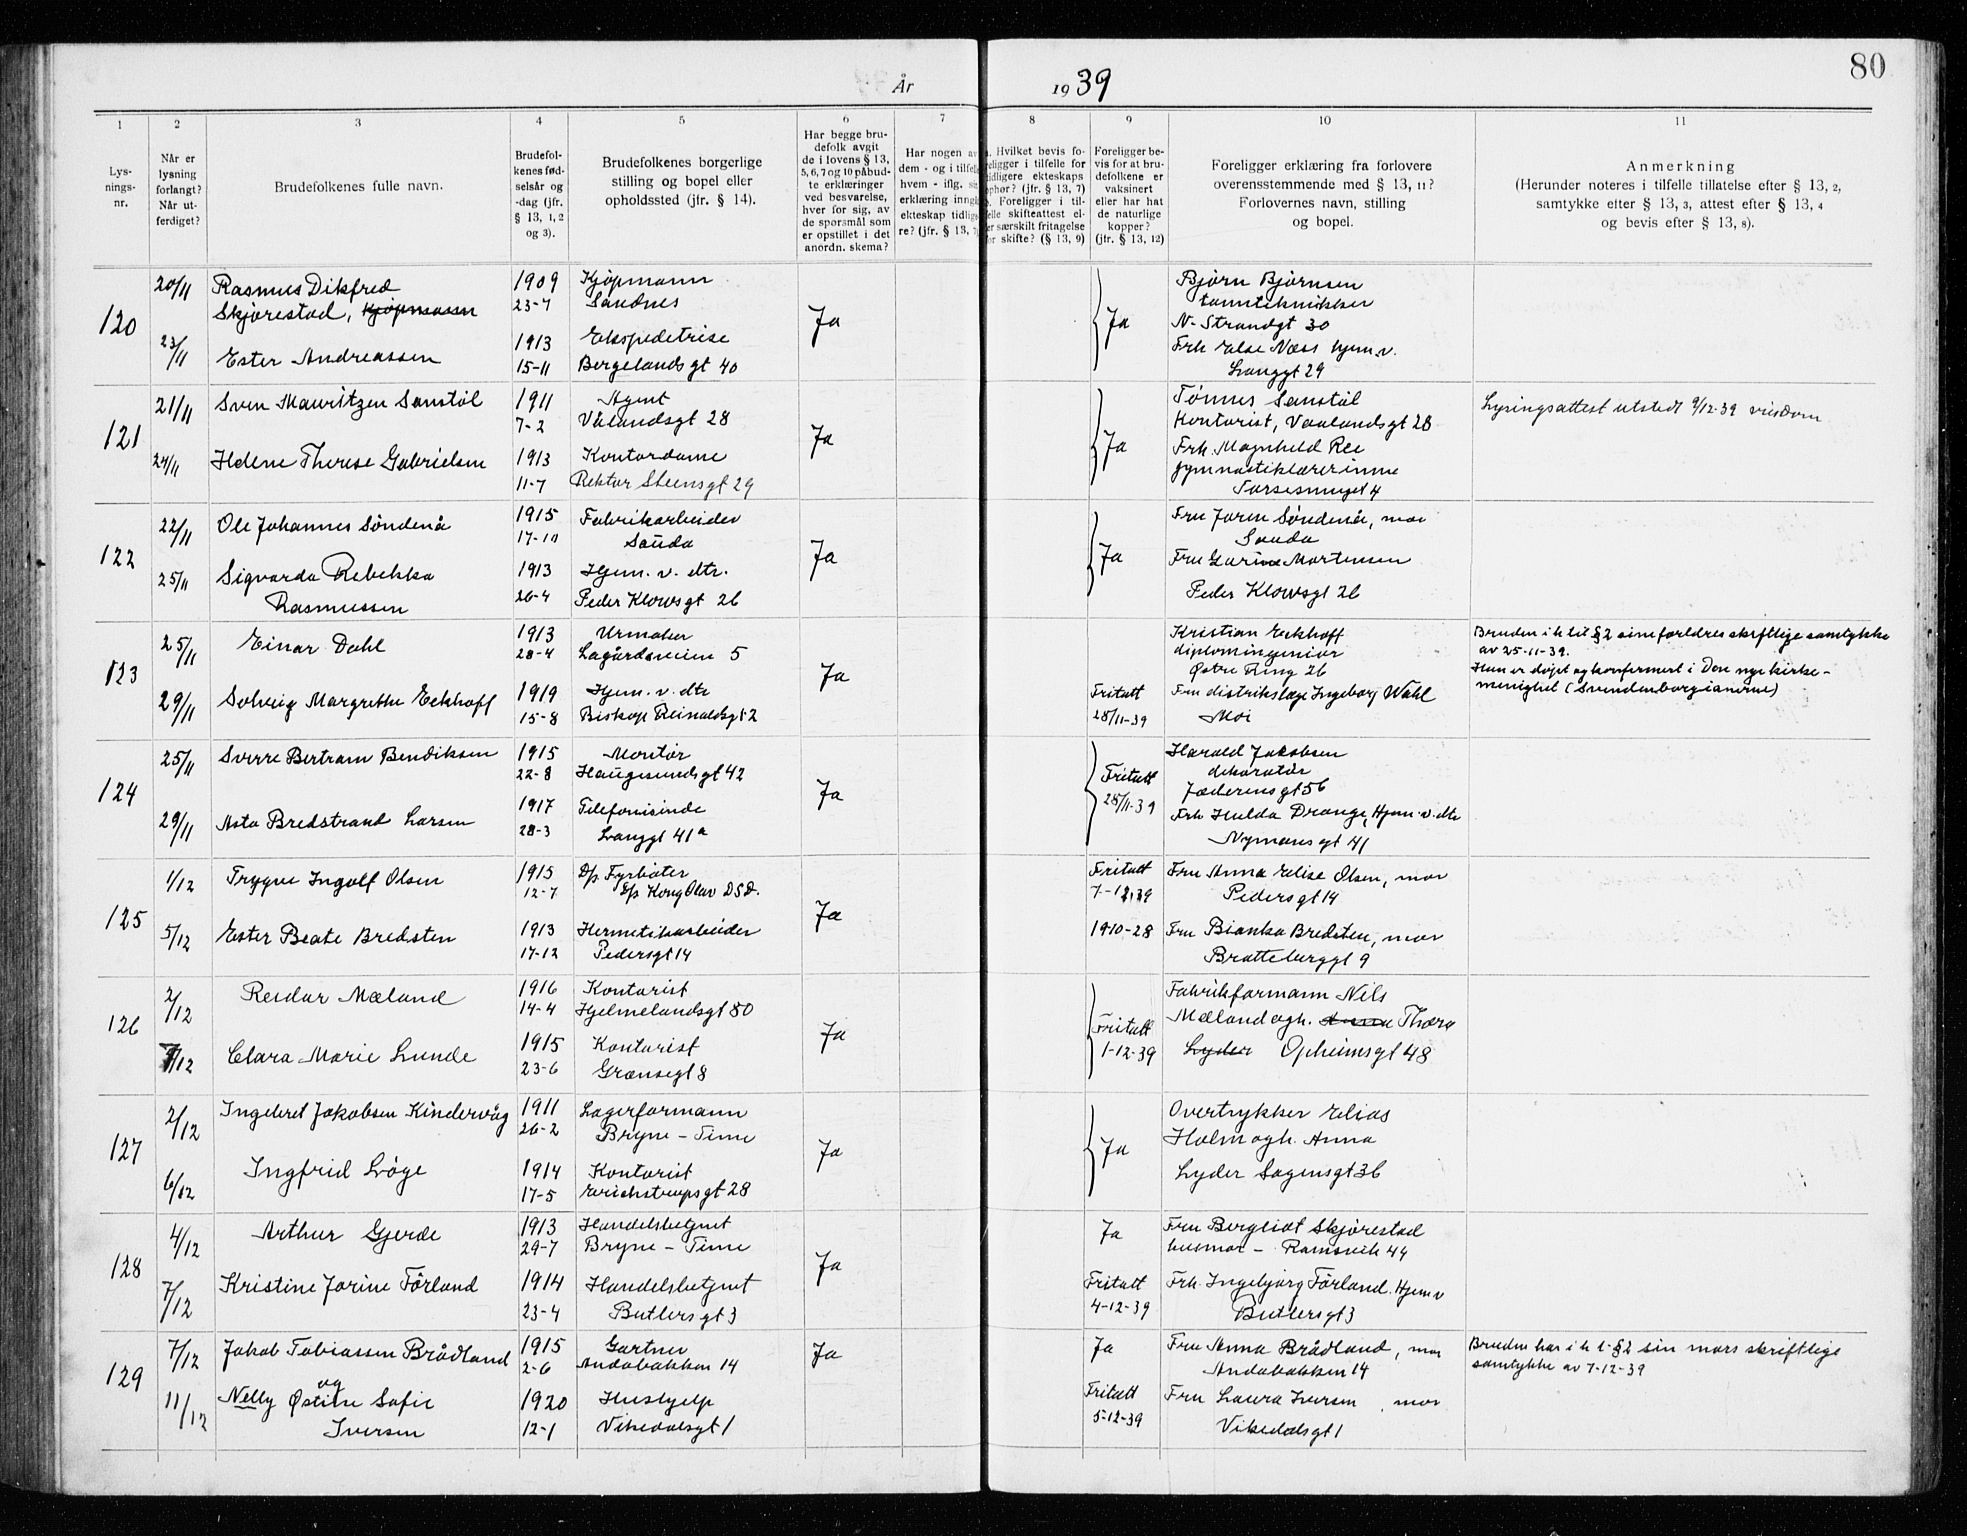 80
År 1939
1 2 3 4 5 6 7 8 9 10 11
Lys-
nings-
nr.
Når er
lysning
forlangt?
Når ut-
ferdiget?
Brudefolkenes fulle navn.
Brudefol-
kenes fød-
selsår og
-dag (jfr.
§ 13, 1, 2
og 3).
Brudefolkenes borgerlige
stilling og bopel eller
opholdssted (jfr. § 14).
Har begge bru-
defolk avgit
de i lovens § 13,
5, 6, 7 og 10 påbud-
te erklæringer
ved besvarelse,
hver for sig, av
de spørsmål som
er opstillet i det
anordn. skema?
Har nogen av
dem - og i tilfelle
hvem - iflg. si
erklæring inngå
ekteskap tidlige
re? (jfr. § 13, 7)
a. Hvilket bevis fo-
religger i tilfelle for
tidligere ekteskaps
ophør? (jfr. § 13, 7)
b. Foreligger i til-
felle skifteattest el-
ler særskilt fritagelse
for skifte? (§ 13, 9)
Foreligger be-
vis for at bru-
defolkene er
vaksinert
eller har hat
de naturlige
kopper?
(jfr. § 13, 12)
Foreligger erklæring fra forlovere
overensstemmende med § 13, 11?
Forlovernes navn, stilling
og bopel.
Anmerkning
(Herunder noteres i tilfelle tillatelse efter § 13, 2,
samtykke efter § 13, 3, attest efter § 13, 4
og bevis efter § 13, 8).
120
20/11 Rasmus Dikfred
Skjørestad, Kjøpmann
1909
23-7
Kjøpmann
Sandnes
23/11 Ester Andreassen
1913
15-11
Ekspedetrise
Bergelandsgt 40
Ja
Ja
Bjørn Bjørnsen
tanntekniker
N-Strandgt 30
Frk Else Næss hjem.v.
Langgt 29
121
21/11 Sven Mauritzen Sanstøl
1911
7-2
Agent
Vålandsgt 28
24/11 Helene Therese Gabrielsen
1913
11-7
Kontordame
Rektor Steensgt 29
Ja
Ja
Tønnes Sanstøl
Kontorist, Vaalandsgt 28
Frk. Magnhild Ree
gymnastiklærerinne
4
Lysingsattest utstedt 9/12-39
122
22/11 Ole Johannes Söndenå
1915
17-10
Fabrikarbeider
Sauda
25/11 Sigvarda Rebekka
Rasmussen
1913
26-4
Hjem. v. dtr.
Peder Klowsgt 26
Ja
Ja
Fru Jorin Söndenå, mor
Sauda
Fru Garine Mortensen
Peder Klowsgt 26
123
25/11 Einar Dahl
1913
28-4
Urmaker
Lagårdsveien 5
29/11 Solveig Margrethe Eckhoff
1919
15-8
Hjem. v. dtr
Biskop Reinaldsgt 2
Ja
Fritatt
28/11-39
Kristian Eckhoff
diplomingeniør
Østre Ring 26
Fru distrikslæge Ingeborg Wahl
Moi
Bruden i h til § 2 sine forældres skriftlige samtykke
av 25-11-39.
Hun er døpt og konfermert i Den nye kirke-
menighet (Svendenborgianerne)
124
25/11 Sverre Bertram Bendiksen
1915
22-8
Montör
Haugesundsgt 42
29/11 Asta Bredstrand Larsen
1917
28-3
Telefonisinde
Langgt 41a
Ja
Fritatt
28/11-39
Harald Jakobsen
dekoratör
Jæderensgt 56
Frk Hulda Drange, Hjem.v.dtr
Nymansgt 41
125
1/12 Trygve Ingolf Olsen
1915
12-7
D/s Fyrbøter
D/s Kong Olav DSD.
5/12 Ester Beate Bredsten
1913
17-12
Hermetikarbeider
Pedersgt 14
Ja
Fritatt
7-12.39
1910-28
Fru Anna Elise Olsen, mor
Pedersgt 14
Fru Bianka Bredsten, mor
Brattebergt 9
126
2/12 Reidar Mæland
1916
14-4
Kontorist
Hjelmelandsgt 80
7/12 Clara Marie Lunde
1915
23-6
Kontorist
Grænsegt 8
Ja
Fritatt
1-12-39
Fabrikformann Nils
Mæland ogh. Anna Thora
Lyder Opheimsgt 48
127
2/12 Ingebret Jakobsen Kindervåg
1911
26-2
Lagerformann
Bryne - Time
6/12 Ingfrid Löge
1914
17-5
Kontorist
Erichstrupsgt 28
Ja
Ja
Overtrykker Elias
Holm ogh. Anna
Lyder Sagensgt 36
128
4/12 Arthur Gjerde
1913
29-7
Handelsbetjent
Bryne - Time
7/12 Kristine Jorine Förland
1914
23-4
Handelsbetjent
Butlersgt 3
Ja
Ja
Fritatt
4-12-39
Fru Bergliot Skjørestad
husmor - Ramsvik 44
Frk. Ingebjørg Förland. Hjem v
Butlersgt 3
129
7/12 Jakob Tobiassen Brådland
1915
2-6
Gartner
Andabakken 14
11/12 Nelly Østine og Sofie
Iversen
1920
12-1
Hushjelp
Vikedalsgt 1
Ja
Ja
Fritatt
5-12-39
Fru Anna Brådland, mor
Andabakken 14
Fru Laura Iversen, mor
Vikedalsgt 1
Bruden har i h t. § 2 sin mors skriftlige
samtykke av 7-12-39